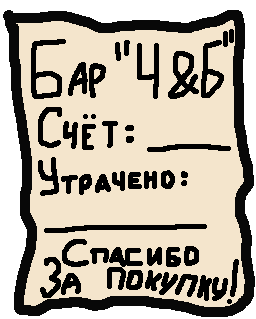 Бар "Ч&Б"
Счёт: ____
Утрачено:
________
Спасибо
За покупку!